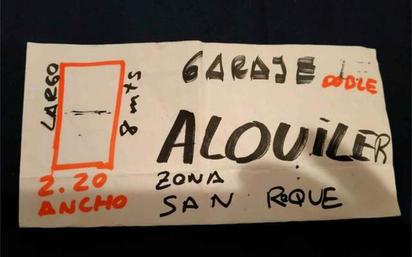 LARGO
8 mts
2.20
ANCHO
GARAJE
DOBLE
ALQUiLER
ZONA
SAN ROQUE